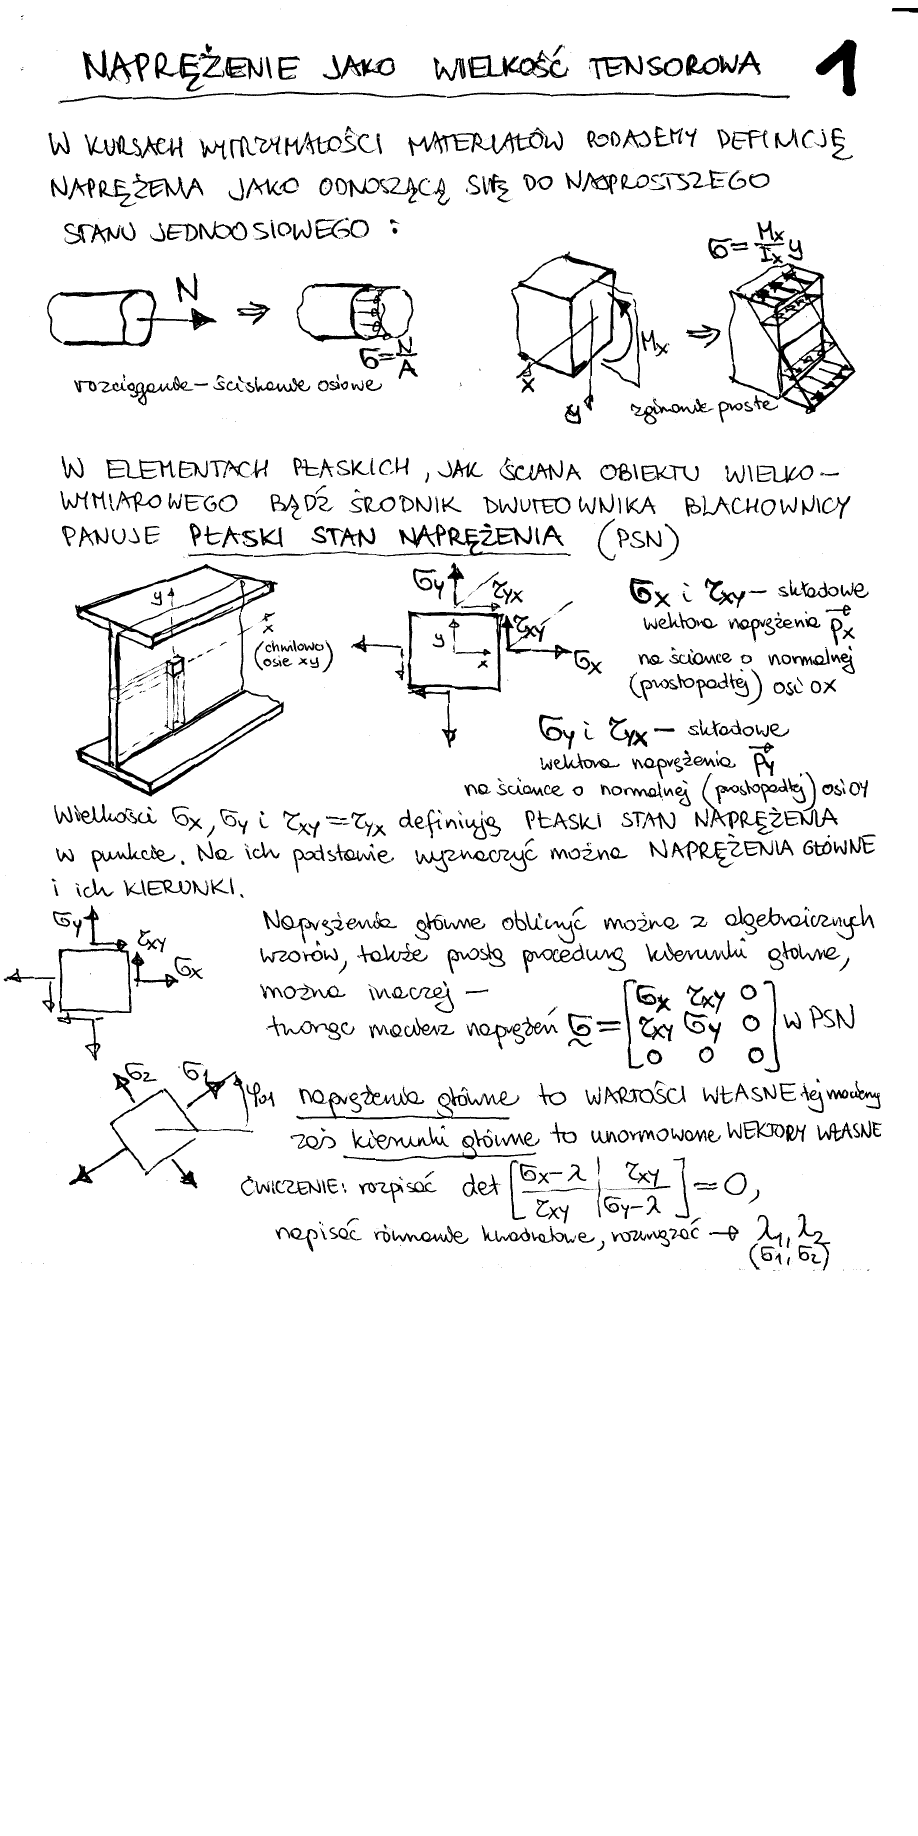 NAPRĘŻENIE JAKO WIELKOŚĆ TENSOROWA 1
W KURSACH WYTRZYMAŁOŚCI MATERIAŁÓW PODAJEMY DEFINICJĘ
NAPRĘŻENIA JAKO ODNOSZĄCĄ SIĘ DO NAJPROSTSZEGO
STANU JEDNOOSIOWEGO :
N ⇒ σ=N/A
rozciąganie – ściskanie osiowe
x y Mx ⇒ σ=Mx/Ix y
zginanie proste
W ELEMENTACH PŁASKICH, JAK ŚCIANA OBIEKTU WIELKO–
WYMIAROWEGO BĄDŹ ŚRODNIK DWUTEOWNIKA BLACHOWNICY
PANUJE PŁASKI STAN NAPRĘŻENIA (PSN)
y x
(chwilowo
osie xy)
σy τyx
τxy
y x σx
σx i τxy – składowe
wektora naprężenia px
na ściance o normalnej
(prostopadłej) osi ox
σy i τyx – składowe
wektora naprężenia py
na ściance o normalnej (prostopadłej) osi oy
Wielkości σx, σy i τxy = τyx definiują PŁASKI STAN NAPRĘŻENIA
w punkcie. Na ich podstawie wyznaczyć można NAPRĘŻENIA GŁÓWNE
i ich KIERUNKI.
σy τxy σx
Naprężenia główne obliczyć można z algebraicznych
wzorów, także prostą procedurą kierunki główne,
można inaczej –
tworząc macierz naprężeń σ = [σx τxy 0
τxy σy 0
0 0 0] w PSN
σ2 σ1 φ01
naprężenia główne to WARTOŚCI WŁASNE tej macierzy
zaś kierunki główne to unormowane WEKTORY WŁASNE
ĆWICZENIE: rozpisać det [σx-λ | τxy
τxy | σy-λ] = 0,
napisać równanie kwadratowe, rozwiązać → λ1, λ2
(σ1, σ2)